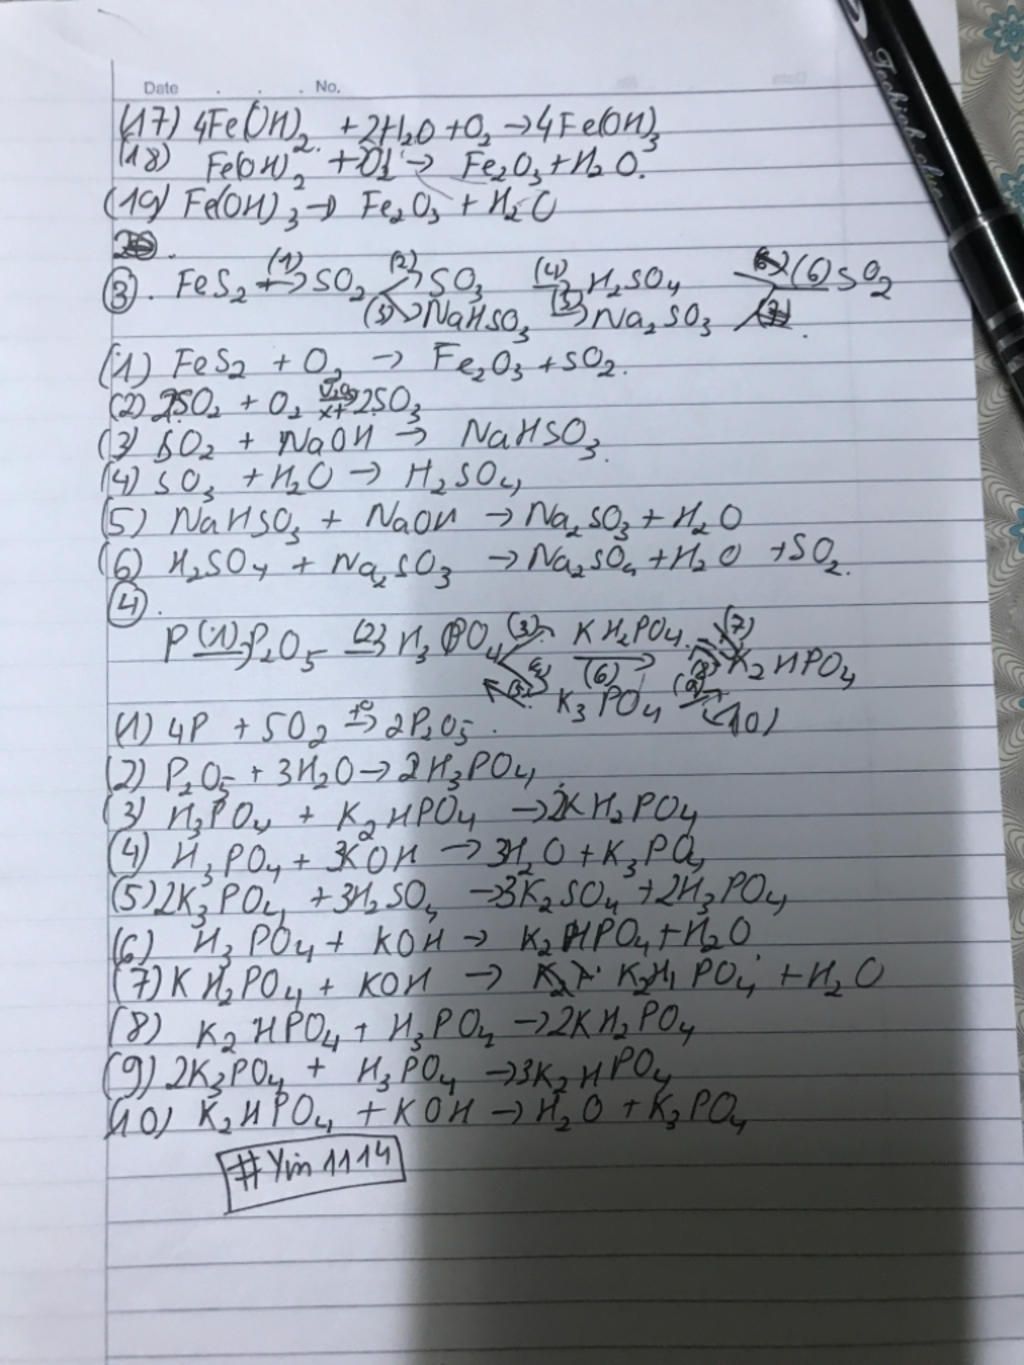 Date . . . No.
(17) 4Fe(OH)2 + 2H2O + O2 → 4Fe(OH)3
(18) Fe(OH)2 + O2 → Fe2O3 + H2O.
(19) Fe(OH)3 → Fe2O3 + H2O
(3). FeS2 (1)→ SO2 (2)→ SO3 (4)→ H2SO4 (6) SO2
(3)→ NaHSO3 (5)→ Na2SO3
(1) FeS2 + O2 → Fe2O3 + SO2.
(2) 2SO2 + O2 V2O5→ xt 2SO3
(3) SO2 + NaOH → NaHSO3.
(4) SO3 + H2O → H2SO4
(5) NaHSO3 + NaOH → Na2SO3 + H2O
(6) H2SO4 + Na2SO3 → Na2SO4 + H2O + SO2.
(4).
P (1)→ P2O5 (2)→ H3PO4 (3) KH2PO4 (7)
(4) (6)→ (8) K2HPO4
(5) K3PO4 (9) (10)
(1) 4P + 5O2 t°→ 2P2O5.
(2) P2O5 + 3H2O → 2H3PO4
(3) H3PO4 + K2HPO4 → 2KH2PO4
(4) H3PO4 + 3KOH → 3H2O + K3PO4
(5) 2K3PO4 + 3H2SO4 → 3K2SO4 + 2H3PO4
(6) H3PO4 + KOH → K2HPO4 + H2O
(7) KH2PO4 + KOH → K2H1PO4 + H2O
(8) K2HPO4 + H3PO4 → 2KH2PO4
(9) 2K3PO4 + H3PO4 → 3K2HPO4
(10) K2HPO4 + KOH → H2O + K3PO4
#Yin1114